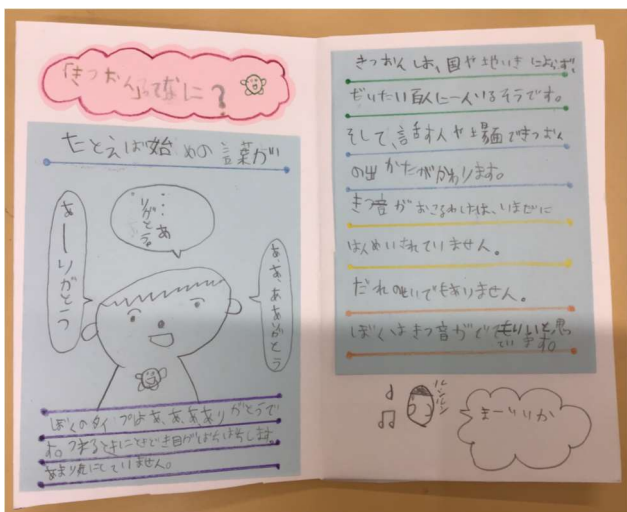 「きつおん」ってなに?
たとえば始めの言葉が
あーりがとう
…あ
りがとう
あ、あ、ああがとう
ぼくのタイプはあ、あ、ああありがとうで
す。つまるときにときどき目がぱちぱちします。
あまり気にしていません。
きつおんしゃは、国や地いきによらず、
だいたい百人に一人いるそうです。
そして、話す人や場面できつおん
の出かたがかわります。
きつ音がおこるわけは、いまだに
はんめいされていません。
だれのせいでもありません。
ぼくはきつ音がでてもいいと思
っています。
ルンルン
まーいいか